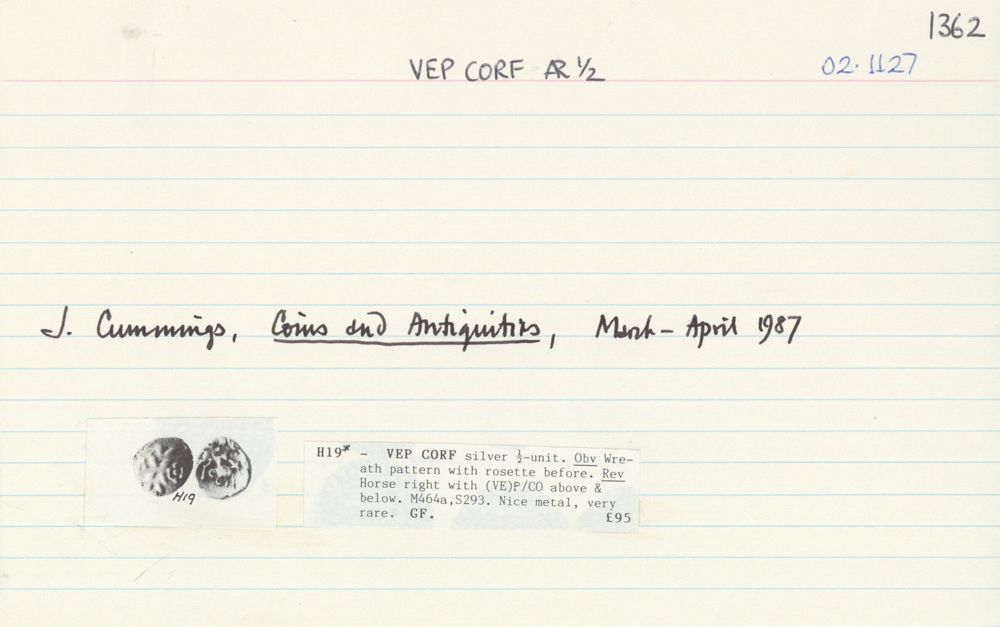 1362
VEP CORF AR 1/2
02.1127
J. Cummings, Coins and Antiquities, March - April 1987
H19
H19* - VEP CORF silver ½-unit. Obv Wre-
ath pattern with rosette before. Rev
Horse right with (VE)P/CO above &
below. M464a,S293. Nice metal, very
rare. GF. £95